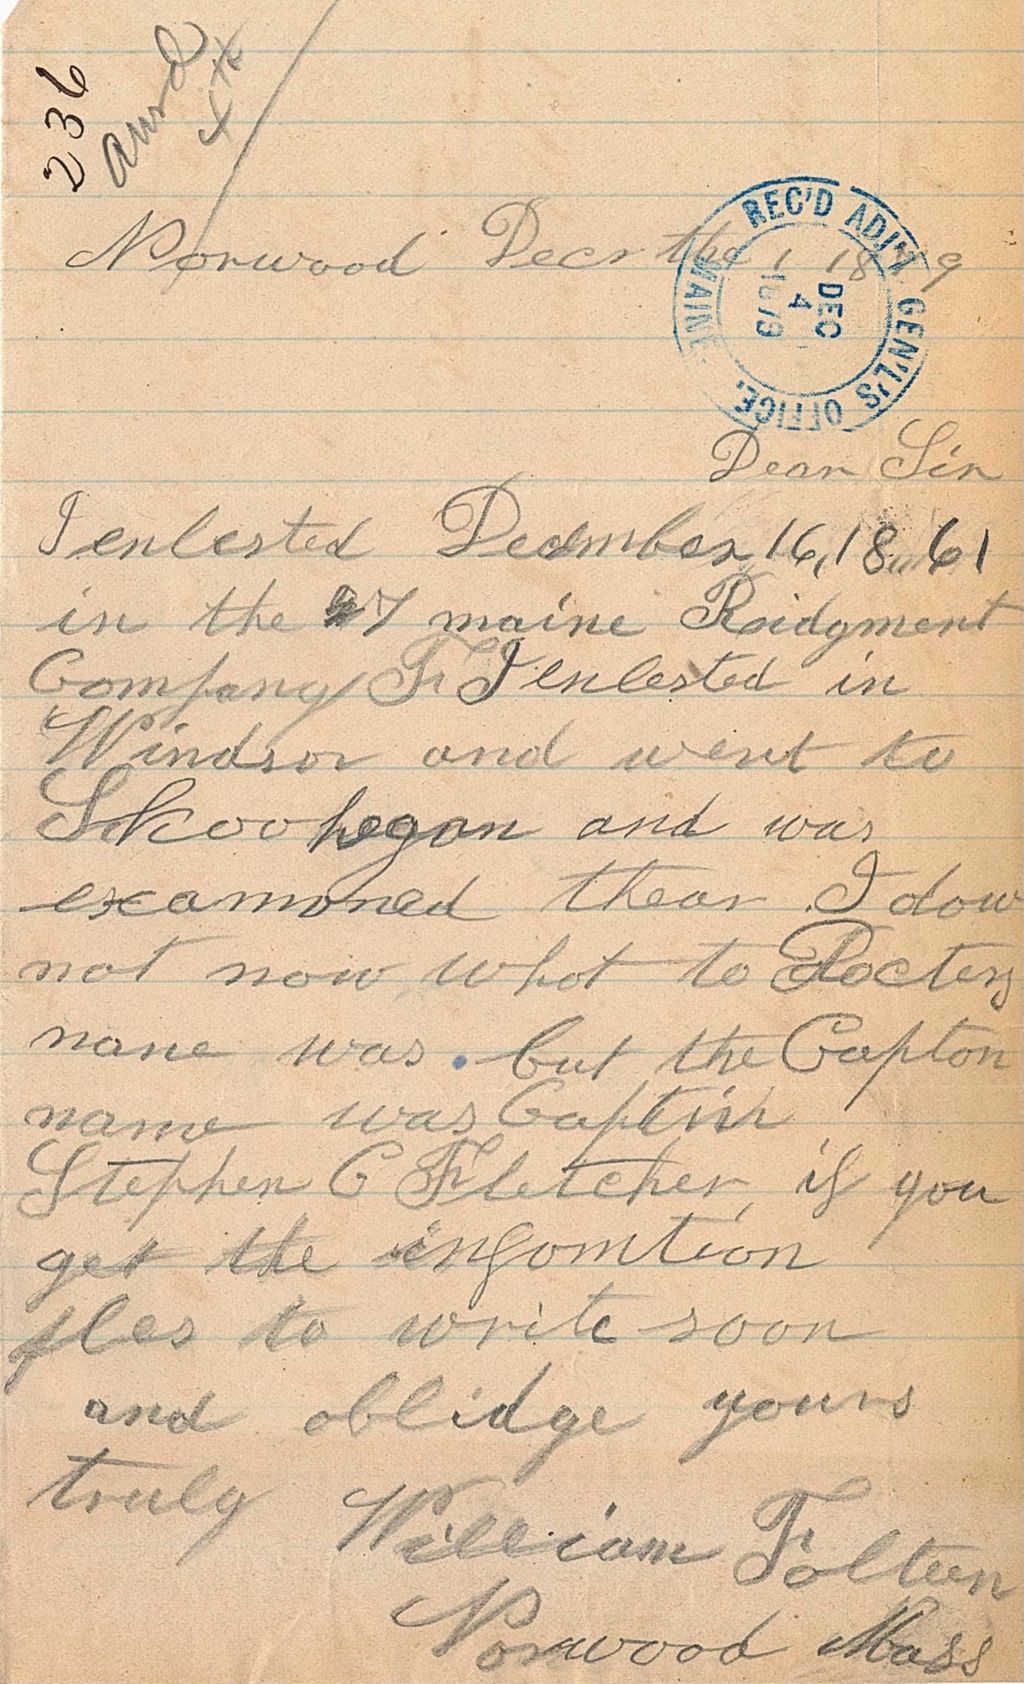 236
ansd
Norwood Decr the 1 1879
REC'D ADJ'T GEN'L'S OFFICE.
MAINE
DEC
4
1879
Dear Sir
I enlested Decmber 16, 1861
in the 7 maine Reidgment
Company F. I enlested in
Windsor and went to
Skoohegan and was
examoned thear I dow
not now what to Docters
name was. but the Capton
name was Captin
Stephen C Fletcher if you
get the infomtion
ples to write soon
and oblidge yours
truly William Folten
Norwood Mass